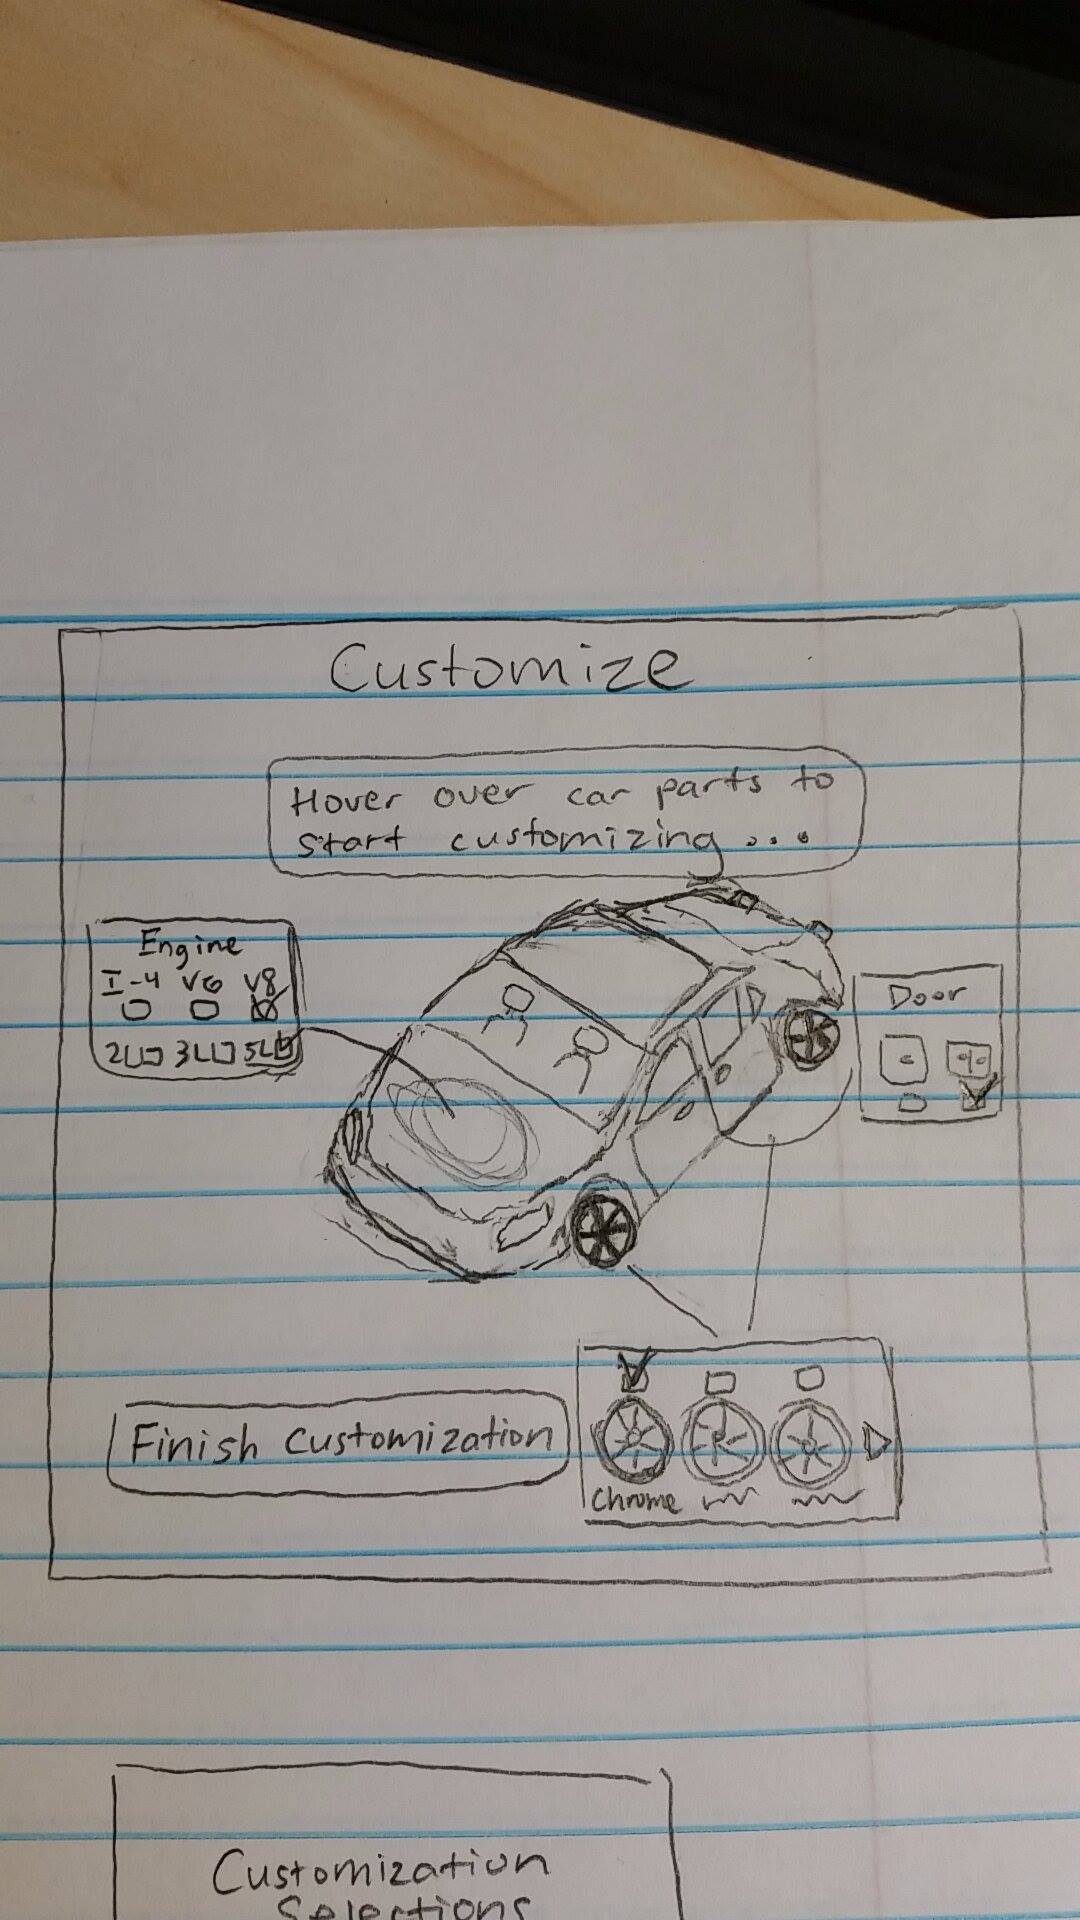 Customize
Hover over car parts to
start customizing...
Engine
I-4 V6 V8
2L 3L 5L
Door
Finish Customization
Chrome
Customization
Selections